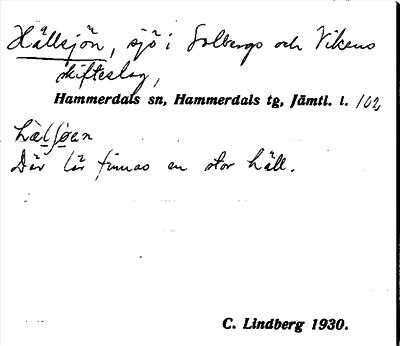 Hällsjön, sjö i Solbergs och Vikens
skifteslag,
Hammerdals sn, Hammerdals tg, Jämtl. l. 102,
hælʃøan
Där lär finnas en stor häll.
C. Lindberg 1930.